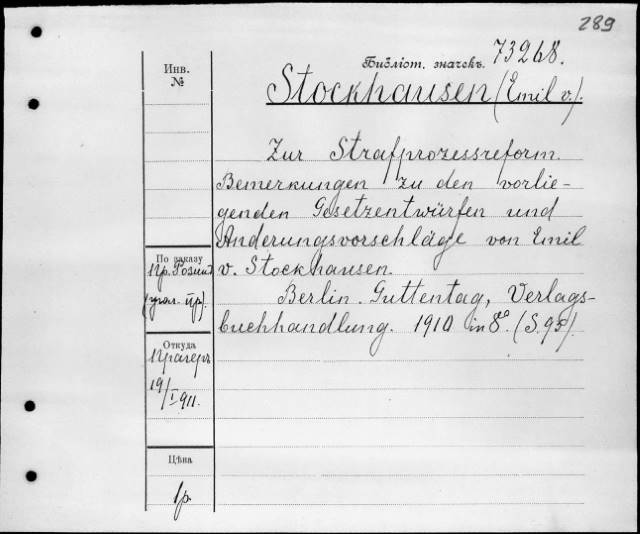 289
Инв.
№
Библіот. значекъ. 73268.
Stockhausen (Emil v.).
Zur Strafprozessreform.
Bemerkungen zu den vorlie-
genden Gesetzentwürfen und
Änderungsvorschläge von Emil
v. Stockhausen.
Berlin. Guttentag, Verlags-
buchhandlung. 1910 in 8°. (S. 95).
По заказу
Пр.
Откуда
Прагеръ
19/I 911.
Цѣна
1 р.